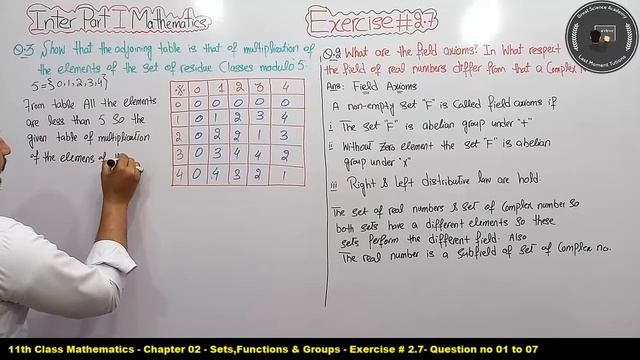 Inter Part I Mathematics
Q.3 Show that the adjoining table is that of multiplication of
the elements of the set of residue Classes modulo 5.
5={0,1,2,3,4}
From table All the elements
are less than 5 so the
given table of multiplication
of the elemens of
* 0 1 2 3 4
0 0 0 0 0 0
1 0 1 2 3 4
2 0 2 2 1 3
3 0 3 4 4 2
4 0 4 3 2 1
Exercise # 2.7
Q.2 What are the field axioms? In What respect
the field of real numbers differ from that a Complex
Ans: Field Axioms
A non-empty set "F" is Called field axioms if
i The set "F" is abelian group under "+"
ii Without Zero element the set "F" is abelian
group under "x"
iii Right & left distributive law are hold.
The set of real numbers & set of Complex number so
both sets have a different elements so these
sets perform the different field. Also
The real number is a subfield of set of Complex no.
Great Science Academy
Last Moment Tutions
11th Class Mathematics - Chapter 02 - Sets,Functions & Groups - Exercise # 2.7- Question no 01 to 07